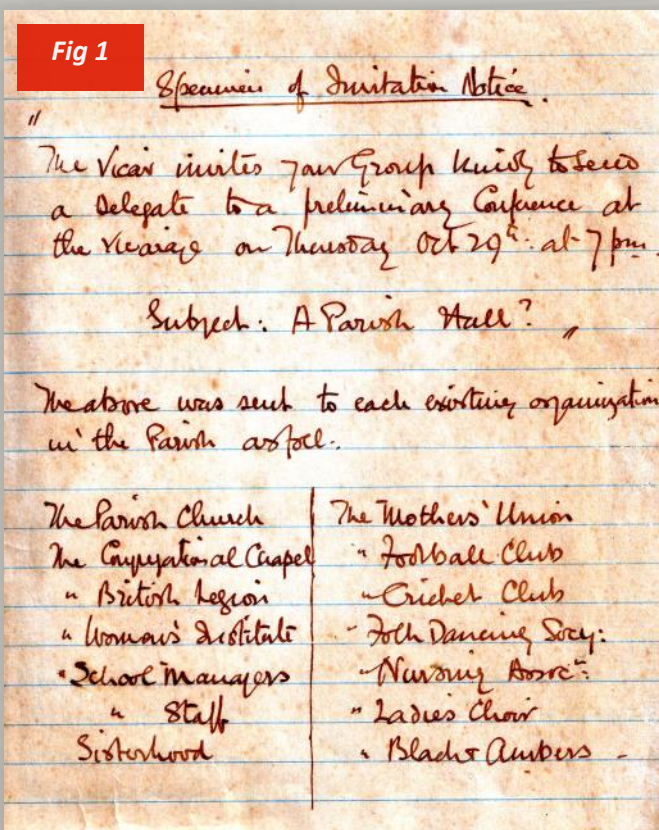 Fig 1
Specimen of Invitation Notice.
"
The Vicar invites your Group kindly to send
a Delegate to a preliminary Conference at
the Vicarage on Thursday Oct 29th. at 7 pm.
Subject: A Parish Hall? "
The above was sent to each existing organization
in the Parish as foll:.
The Parish Church
The Congregational Chapel
" British Legion
" Woman's Institute
" School Managers
" Staff
Sisterhood
The Mothers' Union
" Football Club
" Cricket Club
" Folk Dancing Socy:
" Nursing Assocn:
" Ladies Choir
" Black & Ambers -